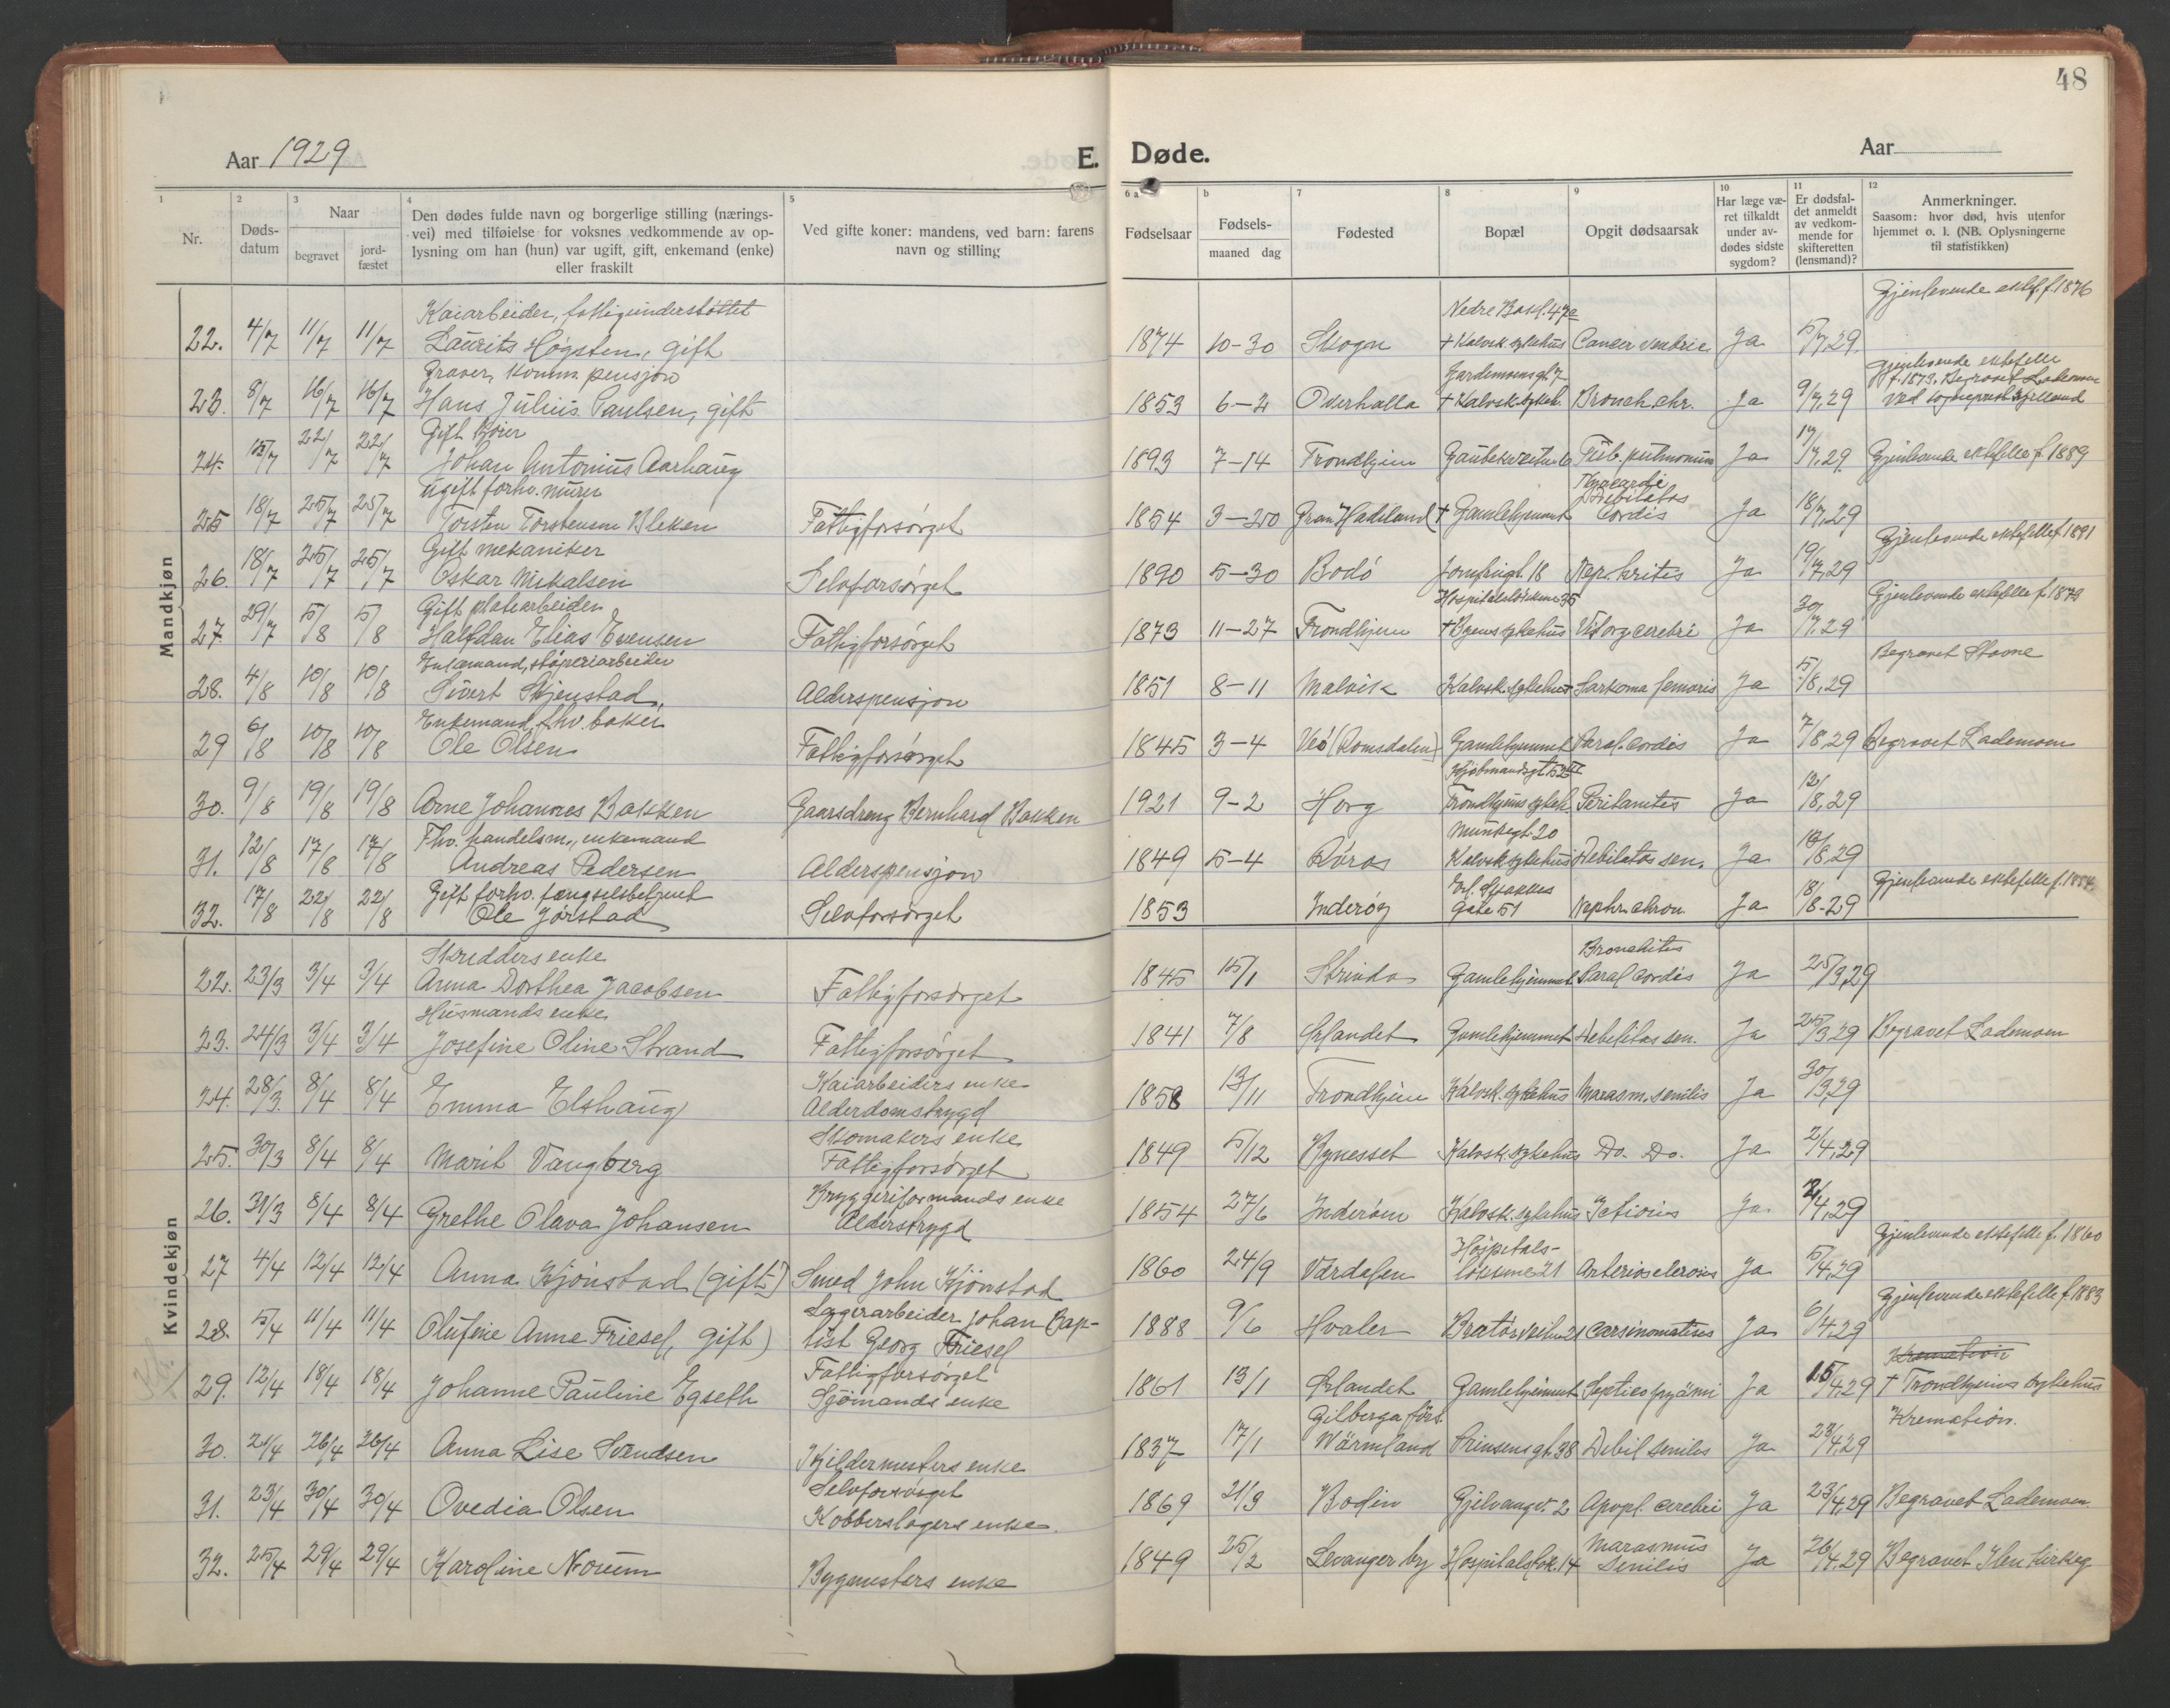 48
Aar 1929
E. Døde.
Aar
1 2 3 4 5 6 a b 7 8 9 10 11 12
Nr.
Døds-
datum
Naar
begravet
jord-
fæstet
Den dødes fulde navn og borgerlige stilling (nærings-
vei) med tilføielse for voksnes vedkommende av op-
lysning om han (hun) var ugift, gift, enkemand (enke)
eller fraskilt
Ved gifte koner: mandens, ved barn: farens
navn og stilling
Fødselsaar
Fødsels-
maaned dag
Fødested
Bopæl
Opgit dødsaarsak
Har læge væ-
ret tilkaldt
under av-
dødes sidste
sygdom?
Er dødsfal-
det anmeldt
av vedkom-
mende for
skifteretten
(lensmand)?
Anmerkninger.
Saasom: hvor død, hvis utenfor
hjemmet o. l. (NB. Oplysningerne
til statistikken)
Mandkjøn
Kaiarbeider, fattigunderstøttet Nedre Bakl. 47a Gjenlevende ektef. f. 1876
22. 4/7 11/7 11/7 Laurits Høgsten, gift 1874 10-30 Skogn + Kalvsk. sykehus Cancer ventric Ja 5/7, 29.
Graver, komm. pensjon Jardemoensgt. 7 Gjenlevende ektefelle
f. 1873. Begravet Lademoen
23. 8/7 16/7 16/7 Hans Julius Paulsen, gift 1853 6-2 Overhalla + Kalvsk. sykeh. Bronch. chr. Ja 9/7, 29 ved sogneprest Kjelland
Gift kører
24. 15/7 22/7 22/7 Johan Antonius Aarhaug 1893 7-14 Trondhjem Gaubekveita 6 Tub. pulmonum Ja 17/7, 29 Gjenlevende ektefelle f. 1889
Ugift forhv. murer Myocardi
Debilitas
25 18/7 25/7 25/7 Torsten Torstensen Bleken Fattigforsørget 1854 3-20 Gran Hadeland + Gamlehjemmet Cordis Ja 18/7, 29
Gift mekaniker Gjenlevende ektefelle f. 1891
26. 18/7 25/7 25/7 Oskar Mikalsen Selvforsørget 1890 5-30 Bodö Jomfrugt. 18 Nephritis Ja 19/7, 29
Gift platearbeider Hospitalsløkken 35 Gjenlevende ektefelle f. 1879
27. 29/7 5/8 5/8 Halfdan Elias Evensen Fattigforsørget 1873 11-27 Trondhjem + Byens sykehus Vit. org. cerebri Ja 30/7, 29
Enkemand, støperiarbeider Begravet Stavne
28. 4/8 10/8 10/8 Sivert Stjenstad Alderspensjon 1851 8-11 Malvik Kalvsk. sykehus Sarkoma femoris Ja 5/8, 29
Enkemand, fhv. baker
29 6/8 10/8 10/8 Ole Olsen Fattigforsørget 1845 3-4 Veö (Romsdalen) Gamlehjemmet Paral. cordis Ja 7/8, 29 Begravet Lademoen
Kjøbmandsgt. 52 II
30. 9/8 19/8 19/8 Arne Johannes Bakken Gaarsdreng Bernhard Bakken 1921 9-2 Horg Trondhjems sykeh. Peritonitis Ja 12/8, 29
Fhv. handelsm., enkemand Munkegt. 20
31. 12/8 17/8 17/8 Andreas Pedersen Alderspensjon 1849 5-4 Røros Kalvsk. sykehus Debilitas sen. Ja /8, 29
Gift forhv. fængselsbetjent Erl. Skakkes Gjenlevende ektefelle f. 1854
32. 17/8 22/8 22/8 Ole Jørstad Selvforsørget 1853 Inderøy Gate 51 Nephr. chron. Ja 18/8-29
Kvindekjøn
Skredders enke Bronchitis
22. 23/3 3/4 3/4 Anna Dorthea Jacobsen Fattigforsørget 1845 15/1 Strinda Gamlehjemmet Paral. cordis Ja 25/3, 29
Husmands enke
23. 24/3 3/4 3/4 Josefine Oline Strand Fattigforsørget 1841 7/8 Ørlandet Gamlehjemmet Debilitas sen. Ja 25/3, 29 Begravet Lademoen
Kaiarbeiders enke
24. 28/3 8/4 8/4 Emma Elshaug Alderdomstrygd 1858 13/11 Trondhjem Kalvsk. sykehus Marasm. senilis Ja 30/3, 29
Skomakers enke
25. 30/3 8/4 8/4 Marit Vangberg Fattigforsørget 1849 5/12 Bynesset Kalvsk. sykehus Do. Do. Ja 2/4, 29
Bryggeriformands enke
26. 31/3 8/4 8/4 Grethe Olava Johansen Alderstrygd 1854 27/6 Inderøen Kalvsk. sykehus Icterus Ja 2/4, 29
Hospitals- Gjenlevende ektefelle f. 1860
27 4/4 12/4 12/4 Anna Kjönstad (gift) Smed John Kjönstad 1860 24/9 Værdalen løkkene 21 Arteriosclerosis Ja 5/4, 29
Lagerarbeider Johan Bap- Gjenlevende ektefelle f. 1883
28. 5/4 11/4 11/4 Olufine Anne Friesel, gift) tist Georg Friesel 1888 9/6 Hvaler Bratørveiten 21 Carsinomatises Ja 6/4, 29
Fattigforsørget Kremation
29. 12/4 18/4 18/4 Johanne Pauline Egseth Sjömands enke 1861 13/1 Ørlandet Gamlehjemmet Septico pyämi Ja 15/4, 29 + Trondhjems sykehus
Gilberga förs. Kremation.
30. 21/4 26/4 26/4 Anna Lise Svendsen Kjeldermesters enke 1837 17/1 Wärmland Prinsensgt. 38 Debil senilis Ja 23/4, 29
Selvforsørget
31. 23/4 30/4 30/4 Ovedia Olsen Kobberslagers enke. 1869 21/3 Bodin Gjelvangv. 2 Apopl. cerebri Ja 23/4, 29 Begravet Lademoen
Marasmus
32. 25/4 29/4 29/4 Karoline Norum Bygmesters enke 1849 25/2 Levanger by Hospitalsløk. 14 Senilis Ja 26/4, 29 Begravet Ilen kirkeg